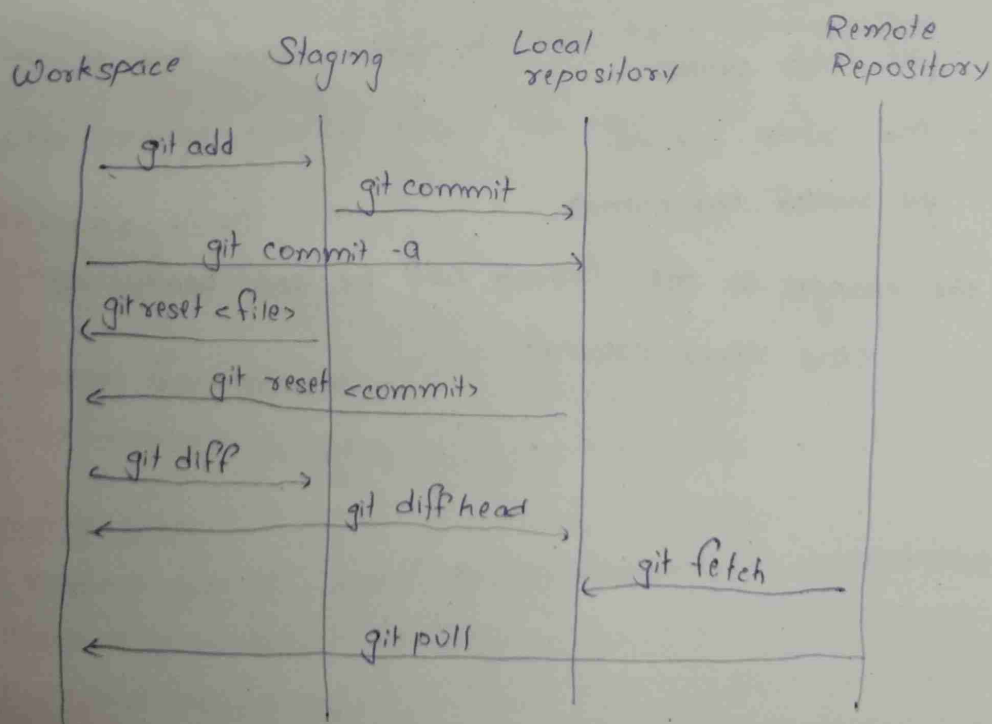 Workspace
Staging
Local
repository
Remote
Repository
git add
git commit
git commit -a
git reset <file>
git reset <commit>
git diff
git diff head
git fetch
git pull